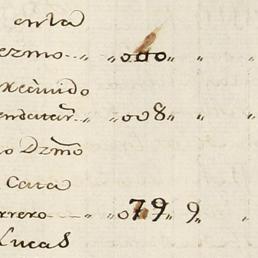 enta
ezmo „ 000 „ „
xecivido
endatar̃ „ 008 „ „
o Dzm̃o
Cata
rrero „ „ 079 9 „
Lucas